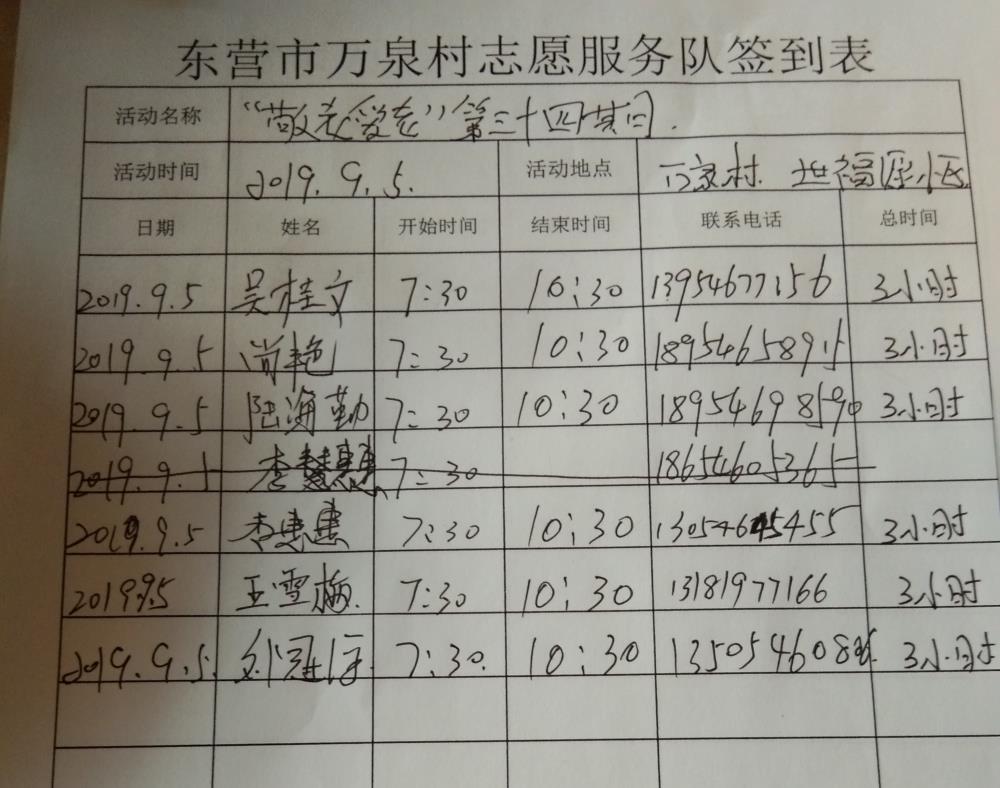 东营市万泉村志愿服务队签到表
活动名称 “敬老爱老”第三十四期
活动时间 2019.9.5. 活动地点 万家村. 小区
日期 姓名 开始时间 结束时间 联系电话 总时间
2019.9.5 吴桂文 7:30 10:30 13954677156 3小时
2019.9.5 尚艳 7:30 10:30 18954658915 3小时
2019.9.5 陆海勤 7:30 10:30 18954698590 3小时
2019.9.5 李 7:30 18654605365
2019.9.5 李惠惠 7:30 10:30 3小时
2019.9.5 王雪梅. 7:30 10:30 13181977166 3小时
2019.9.5. 7:30. 10:30 3小时